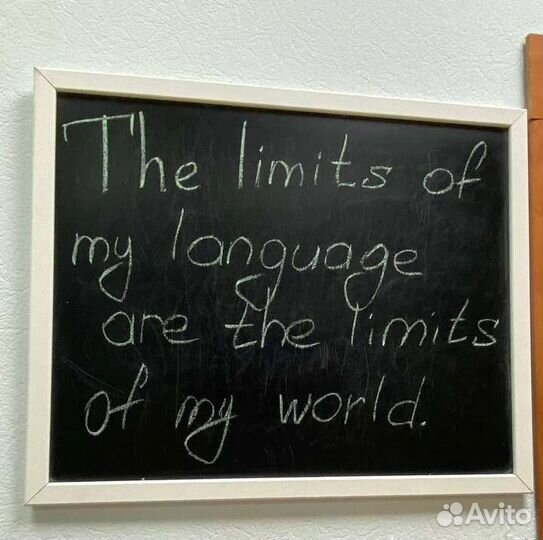 The limits of
my language
are the limits
of my world.
Avito